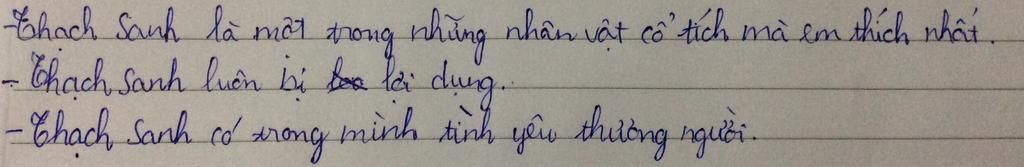 - Thạch Sanh là một trong những nhân vật cổ tích mà em thích nhất.
- Thạch Sanh luôn bị lợi dụng.
- Thạch Sanh có trong mình tình yêu thương người.